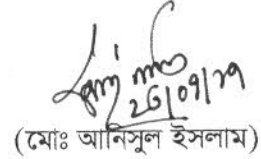 26/09/19
(মোঃ আনিসুল ইসলাম)